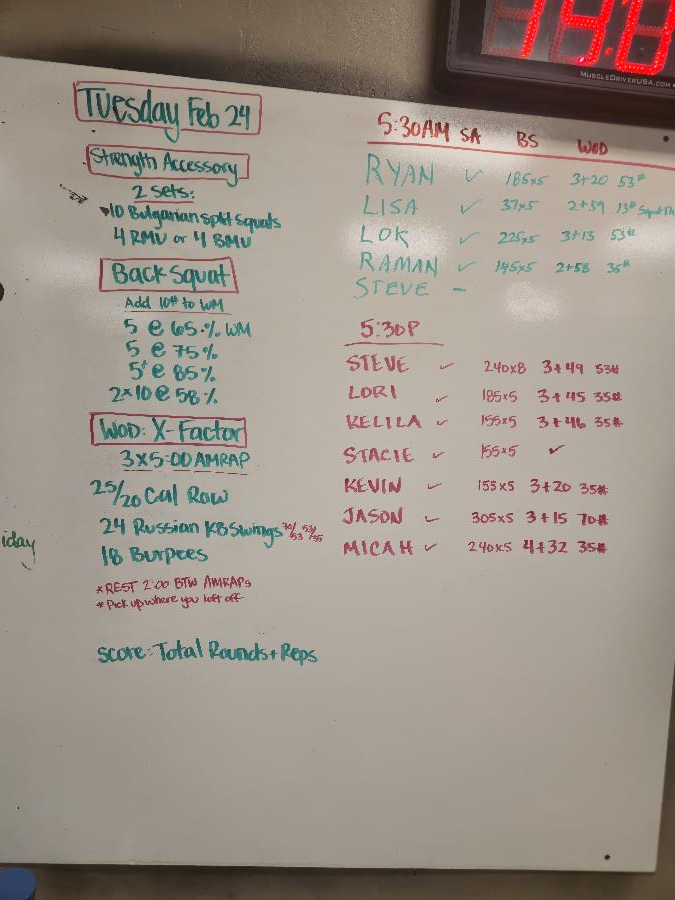 MUSCLEDRIVERUSA.COM
Tuesday Feb 24
Strength Accessory
2 Sets:
10 Bulgarian split squats
4 RMU or 4 BMU
Back Squat
Add 10# to WM
5 @ 65.% WM
5 @ 75%
5+ @ 85%
2x10 @ 58%
WOD: X-Factor
3x5:00 AMRAP
25/20 Cal Row
24 Russian KB Swings 70/53 53/35
18 Burpees
*REST 2:00 BTW AMRAPs
*Pick up where you left off
Score: Total Rounds + Reps
iday
5:30AM SA BS WOD
RYAN ✓ 185x5 3+20 53#
LISA ✓ 37x5 2+39 13#
LOK ✓ 225x5 3+13 53#
RAMAN ✓ 145x5 2+58 35#
STEVE –
5:30P
STEVE ✓ 240x8 3+49 53#
LORI ✓ 185x5 3+45 35#
KELILA ✓ 155x5 3+46 35#
STACIE ✓ 155x5 ✓
KEVIN ✓ 155x5 3+20 35#
JASON ✓ 305x5 3+15 70#
MICAH ✓ 240x5 4+32 35#